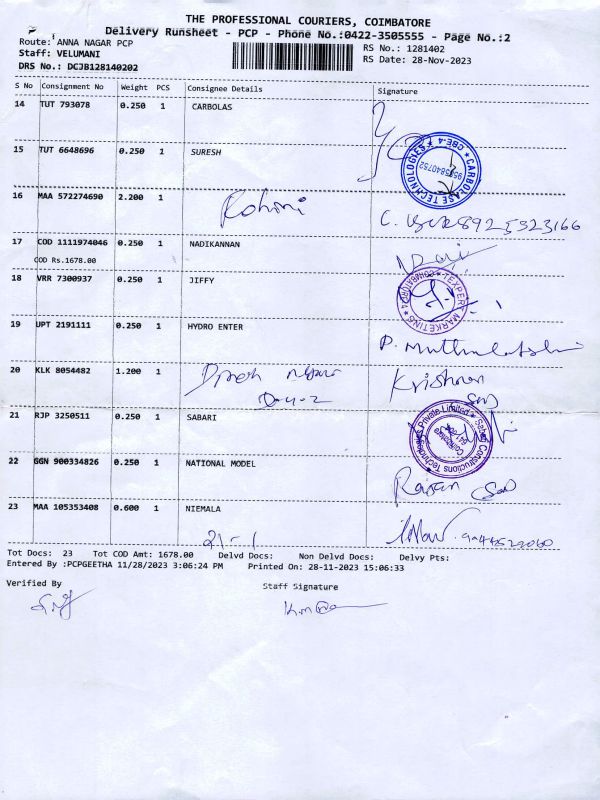 THE PROFESSIONAL COURIERS, COIMBATORE
Delivery Runsheet - PCP - Phone No.:0422-3505555 - Page No.:2
Route: ANNA NAGAR PCP
RS No.: 1281402
Staff: VELUMANI
RS Date: 28-Nov-2023
DRS No.: DCJB128140202
S No Consignment No Weight PCS Consignee Details Signature
14 TUT 793078 0.250 1 CARBOLAS
15 TUT 6648696 0.250 1 SURESH
CARBOLASE TECHNOLOGIES ★ CBE-4 ★
16 MAA 572274690 2.200 1 Rohini
17 COD 1111974046 0.250 1 NADIKANNAN
COD Rs.1678.00
18 VRR 7300937 0.250 1 JIFFY
TEXPERT MARKETING ★ COIMBATORE-4 ★
19 UPT 2191111 0.250 1 HYDRO ENTER
P. Muthulakshmi
20 KLK 8054482 1.200 1 Krishnan
21 RJP 3250511 0.250 1 SABARI
Constructions Technologies Private Limited ★ Coimbatore
22 GGN 900334826 0.250 1 NATIONAL MODEL
Rajan
23 MAA 105353408 0.600 1 NIEMALA
Tot Docs: 23 Tot COD Amt: 1678.00 Delvd Docs: Non Delvd Docs: Delvy Pts:
Entered By :PCPGEETHA 11/28/2023 3:06:24 PM Printed On: 28-11-2023 15:06:33
Verified By Staff Signature